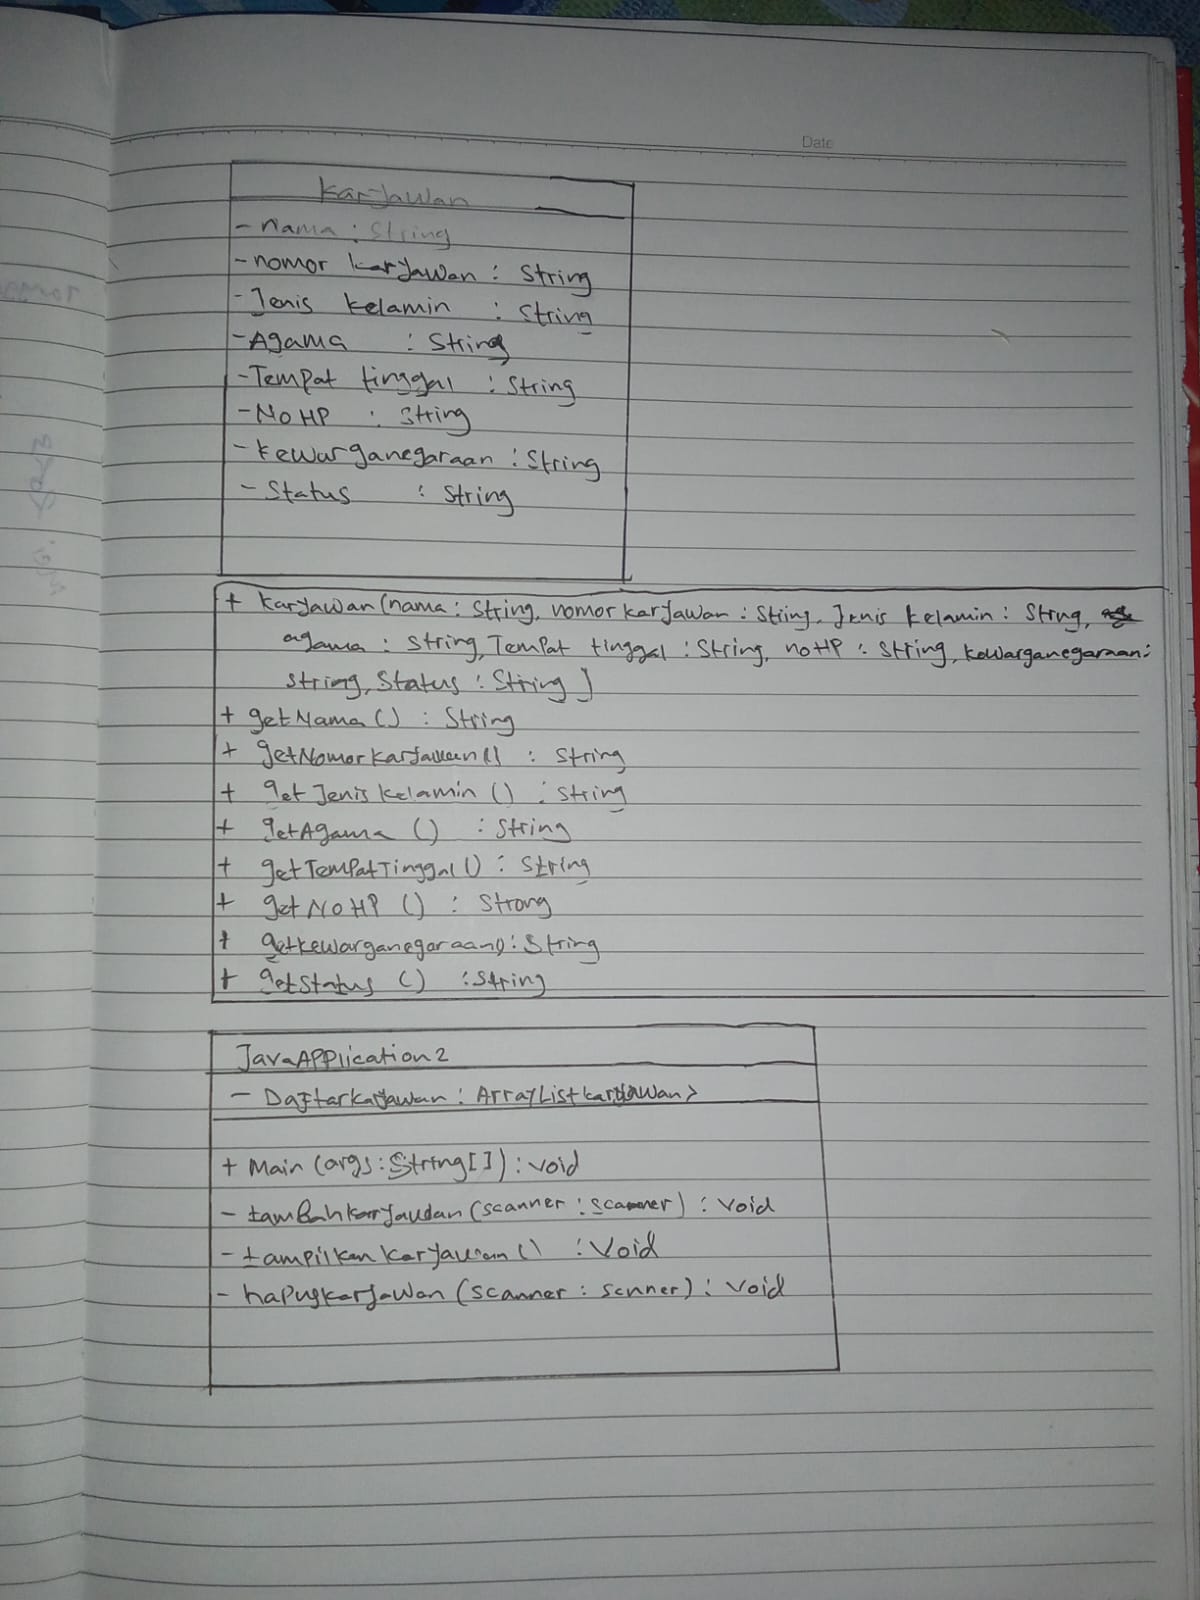 Date
Karyawan
- nama : String
- nomor karyawan : String
- Jenis kelamin : String
- Agama : String
- Tempat tinggal : String
- No HP : String
- kewarganegaraan : String
- Status : String
+ karyawan (nama : String, nomor karyawan : String, Jenis kelamin : String,
agama : String, Tempat tinggal : String, no HP : String, kewarganegaraan :
String, Status : String )
+ getNama () : String
+ getNomorkaryawan () : String
+ get Jenis kelamin () : String
+ getAgama () : String
+ getTempatTinggal () : String
+ getNoHP () : Strong
+ getkewarganegaraan() : String
+ getStatus () : String
JavaAPPlication2
- Daftarkaryawan : ArrayListkaryawan>
+ Main (args : String[]) : void
- tambahkaryawan (scanner : scanner) : void
- tampilkan karyawan () : Void
- hapuskaryawan (scanner : scnner) : void